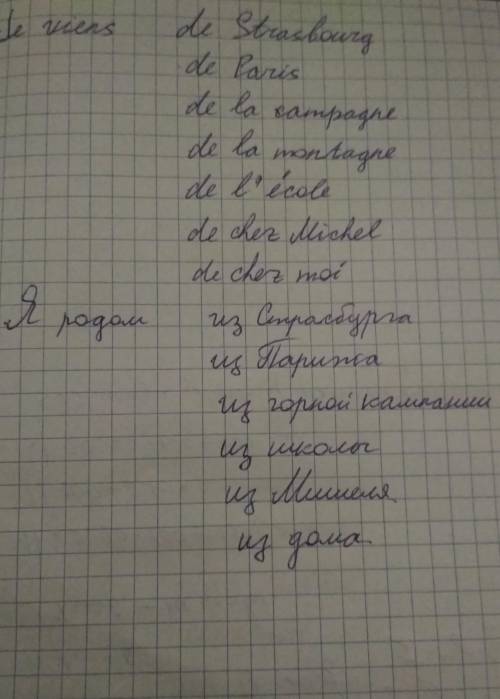 Je viens de Strasbourg
de Paris
de la campagne
de la montagne
de l'école
de chez Michel
de chez moi
Я родом из Страсбурга
из Парижа
из горной кампании
из школы
из Мишеля
из дома